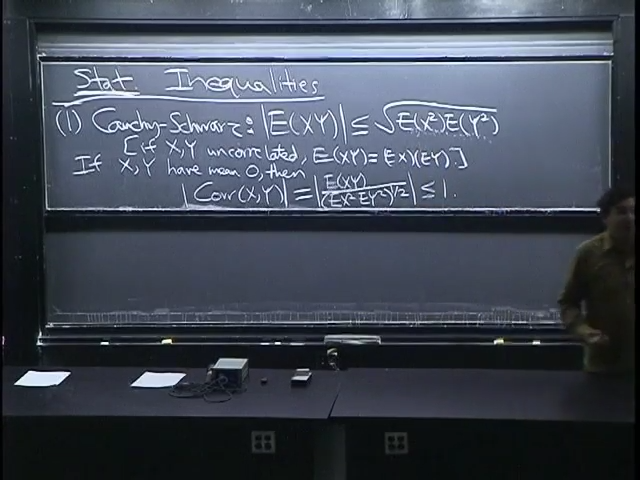 Stat. Inequalities
(1) Cauchy-Schwarz: |E(XY)| ≤ √E(X²)E(Y²)
[if X,Y uncorrelated, E(XY)=E(X)E(Y).]
If X,Y have mean 0, then
|Corr(X,Y)| = |E(XY)/(EX² EY²)^1/2| ≤ 1.